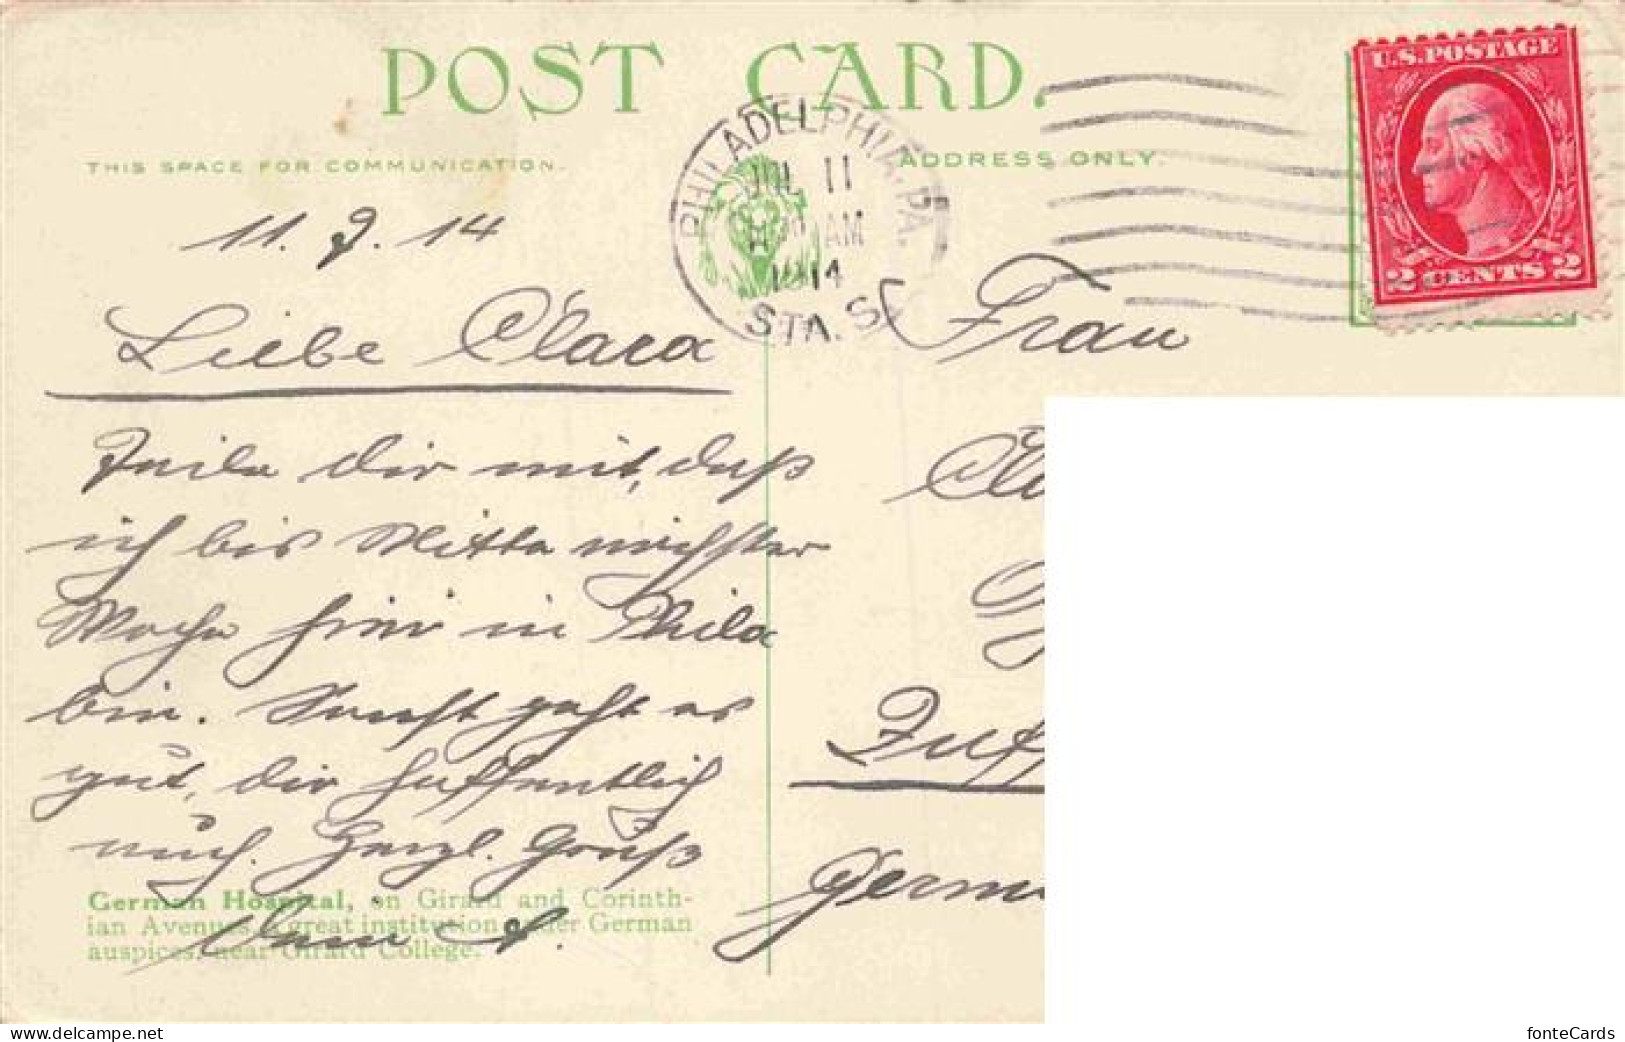 POST CARD.
THIS SPACE FOR COMMUNICATION.
ADDRESS ONLY.
PHILADELPHIA, PA.
JUL 11
AM
1914
STA. S
U.S. POSTAGE
2 CENTS 2
11. 7. 14
Liebe Clara
Teile dir mit, daß
ich bis Mitte nächster
Woche hier in Phila
bin. Sonst geht es
gut, dir hoffentlich
auch. Herzl. Gruß
German Hospital, on Girard and Corinth-
ian Avenues a great institution under German
auspices, near Girard College.
Frau
Germ
fonteCards
www.delcampe.net